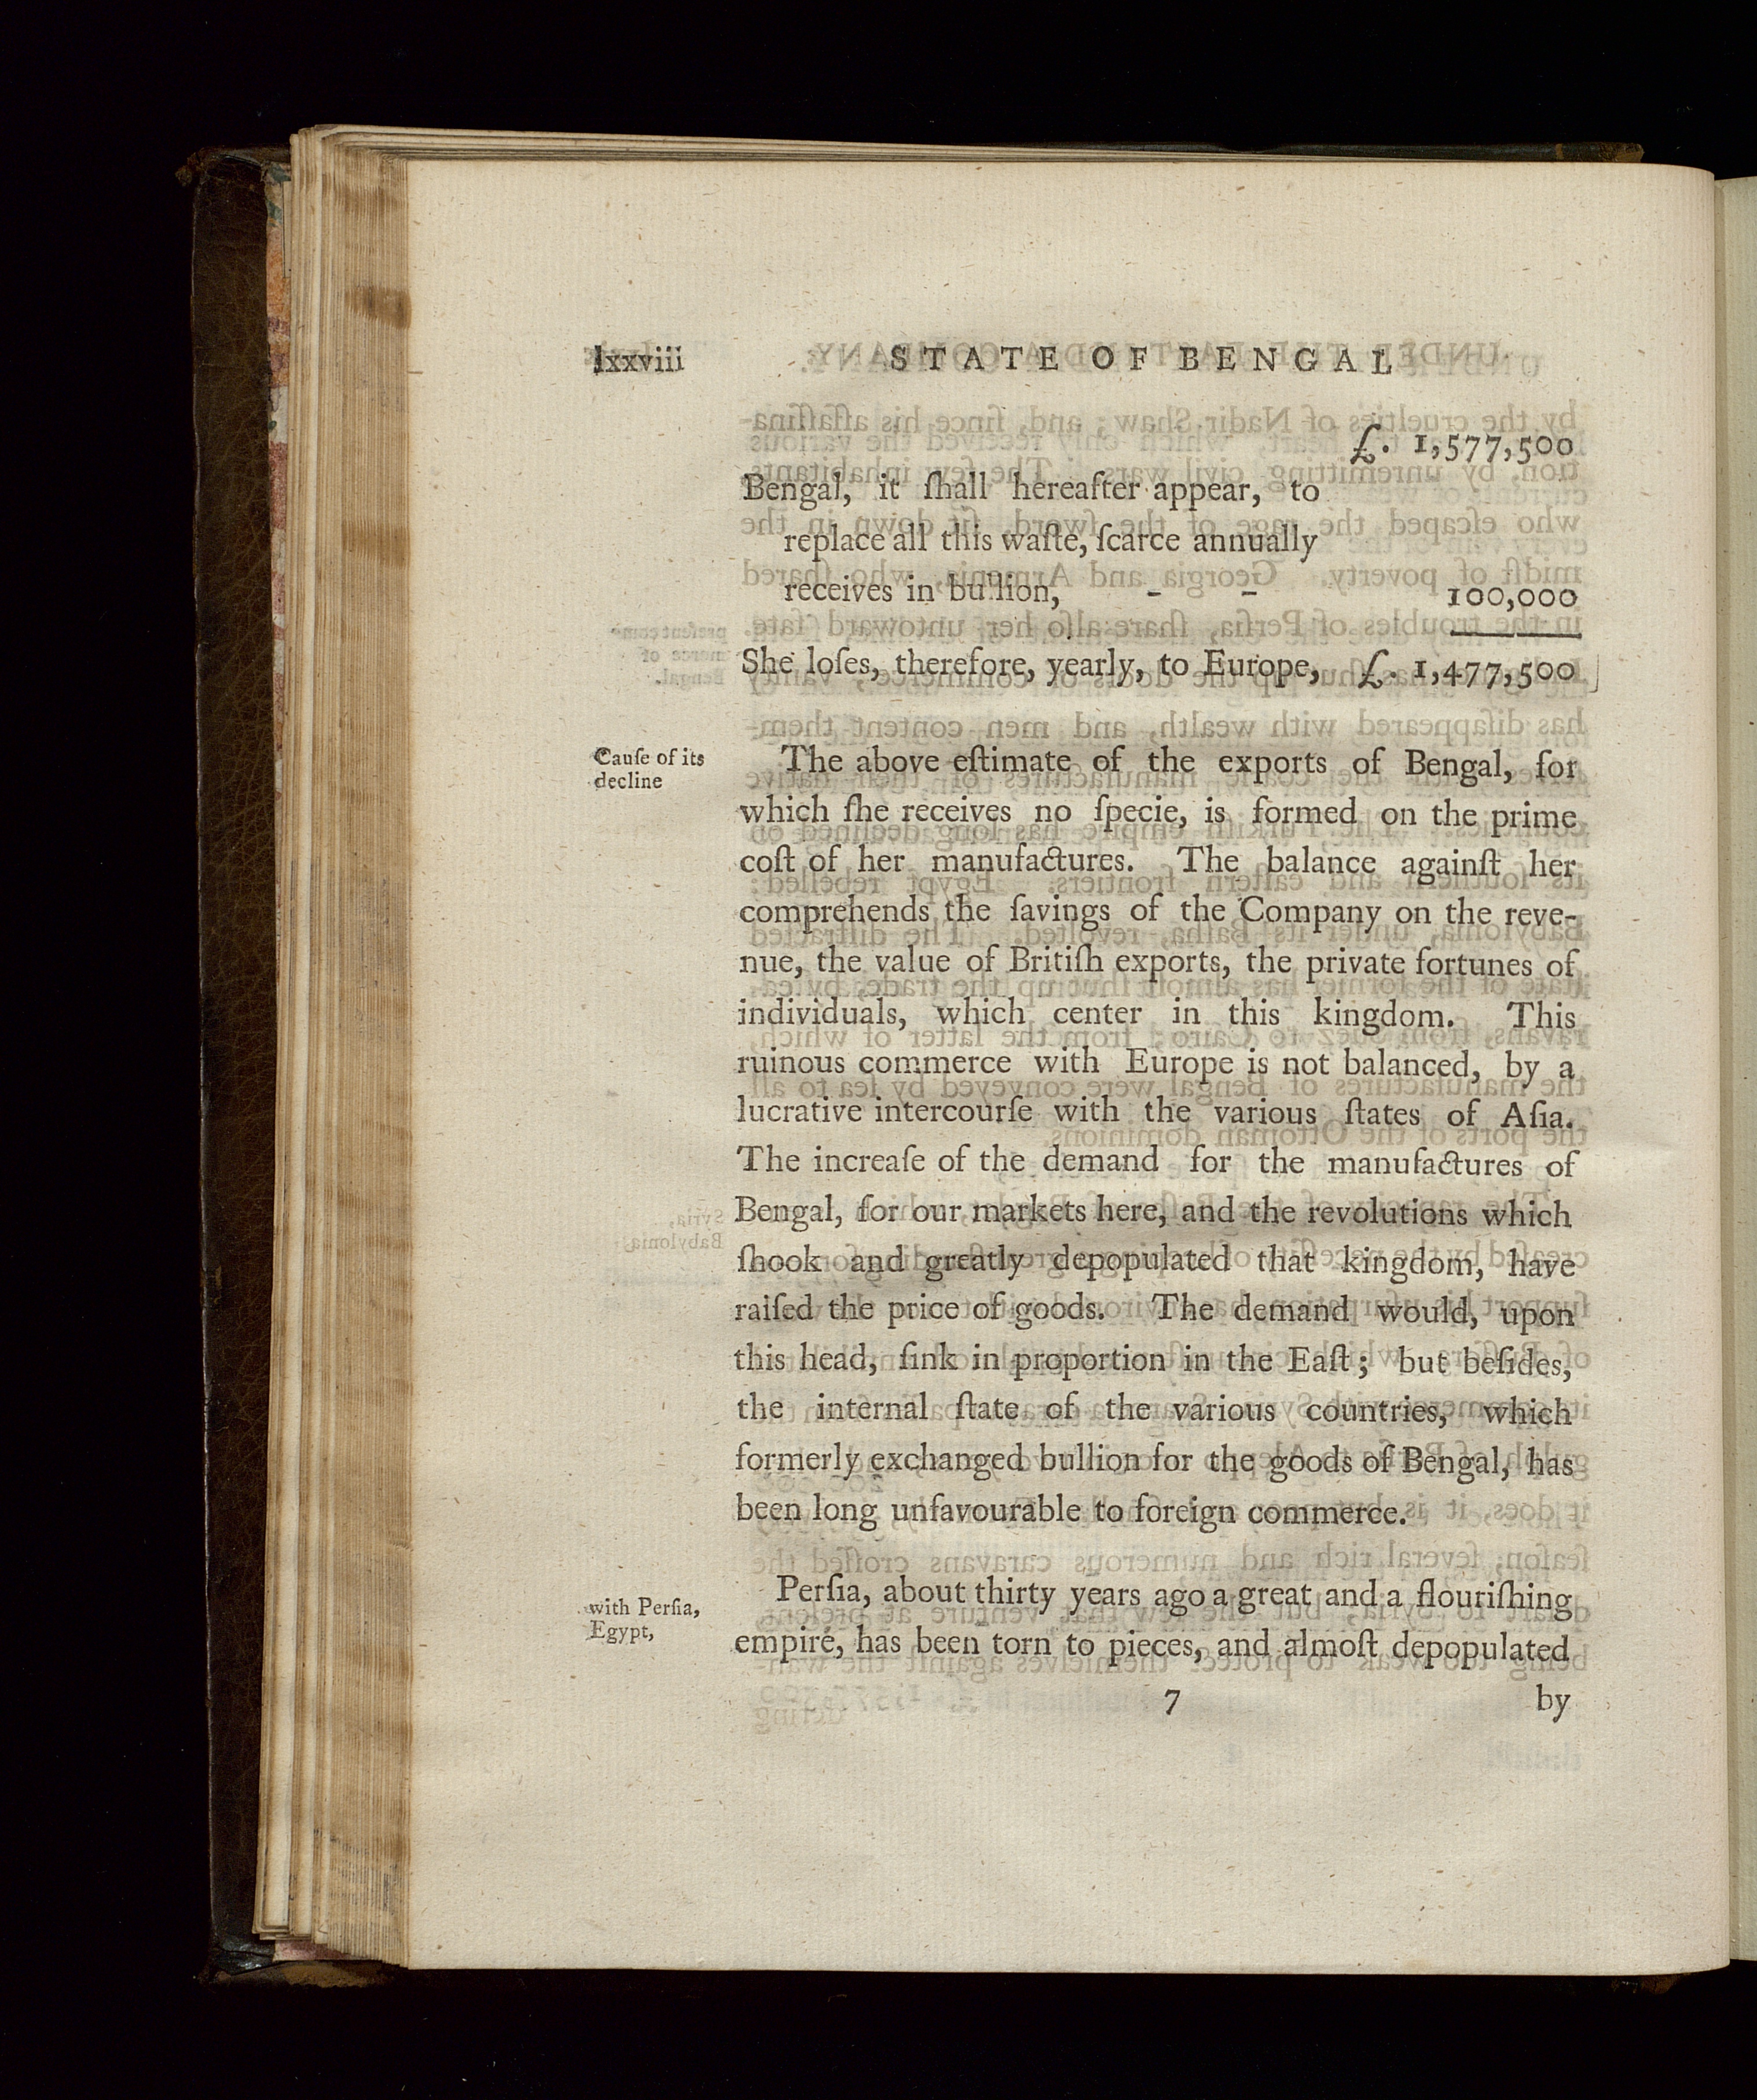 lxxviii STATE OF BENGAL
£. 1,577,500
Bengal, it ſhall hereafter appear, to
replace all this waſte, ſcarce annually
receives in bullion, - - 100,000
She loſes, therefore, yearly, to Europe, £. 1,477,500
Cauſe of its
decline
The above eſtimate of the exports of Bengal, for
which ſhe receives no ſpecie, is formed on the prime
coſt of her manufactures. The balance againſt her
comprehends the ſavings of the Company on the reve-
nue, the value of Britiſh exports, the private fortunes of
individuals, which center in this kingdom. This
ruinous commerce with Europe is not balanced, by a
lucrative intercourſe with the various ſtates of Aſia.
The increaſe of the demand for the manufactures of
Bengal, for our markets here, and the revolutions which
ſhook and greatly depopulated that kingdom, have
raiſed the price of goods. The demand would, upon
this head, ſink in proportion in the Eaſt; but beſides,
the internal ſtate of the various countries, which
formerly exchanged bullion for the goods of Bengal, has
been long unfavourable to foreign commerce.
with Perſia,
Egypt,
Perſia, about thirty years ago a great and a flouriſhing
empire, has been torn to pieces, and almoſt depopulated
7 by